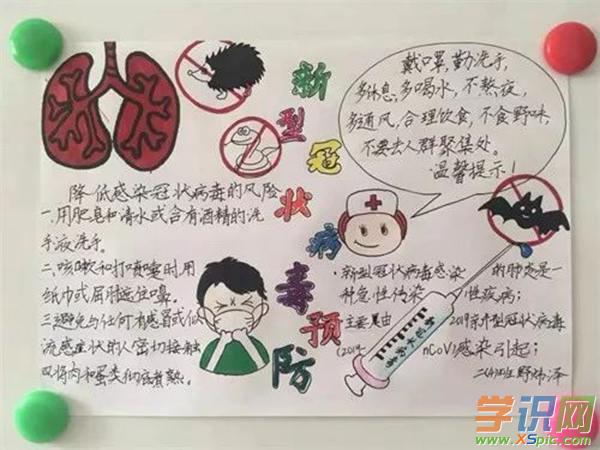 新型冠状病毒预防
戴口罩,勤洗手,
多休息,多喝水,不熬夜,
多通风,合理饮食,不食野味,
不要去人群聚集处。
温馨提示!
降低感染冠状病毒的风险
一.用肥皂和清水或含有酒精的洗
手液洗手。
二.咳嗽和打喷嚏时用
纸巾或屈肘遮住口鼻。
三避免与任何有感冒或似
流感症状的人密切接触
四.将肉和蛋类彻底煮熟。
新型冠状病毒感染的肺炎是一
种急性传染性疾病;
主要是由2019新型冠状病毒
(2019-nCoV)感染引起;
学识网
www.XSpic.com